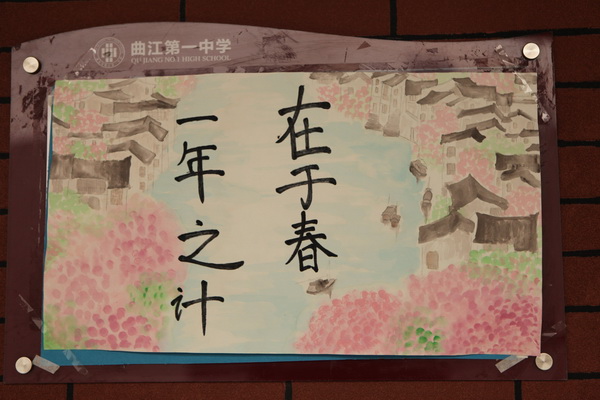 曲江第一中学
QU JIANG NO.1 HIGH SCHOOL
一年之计
在于春